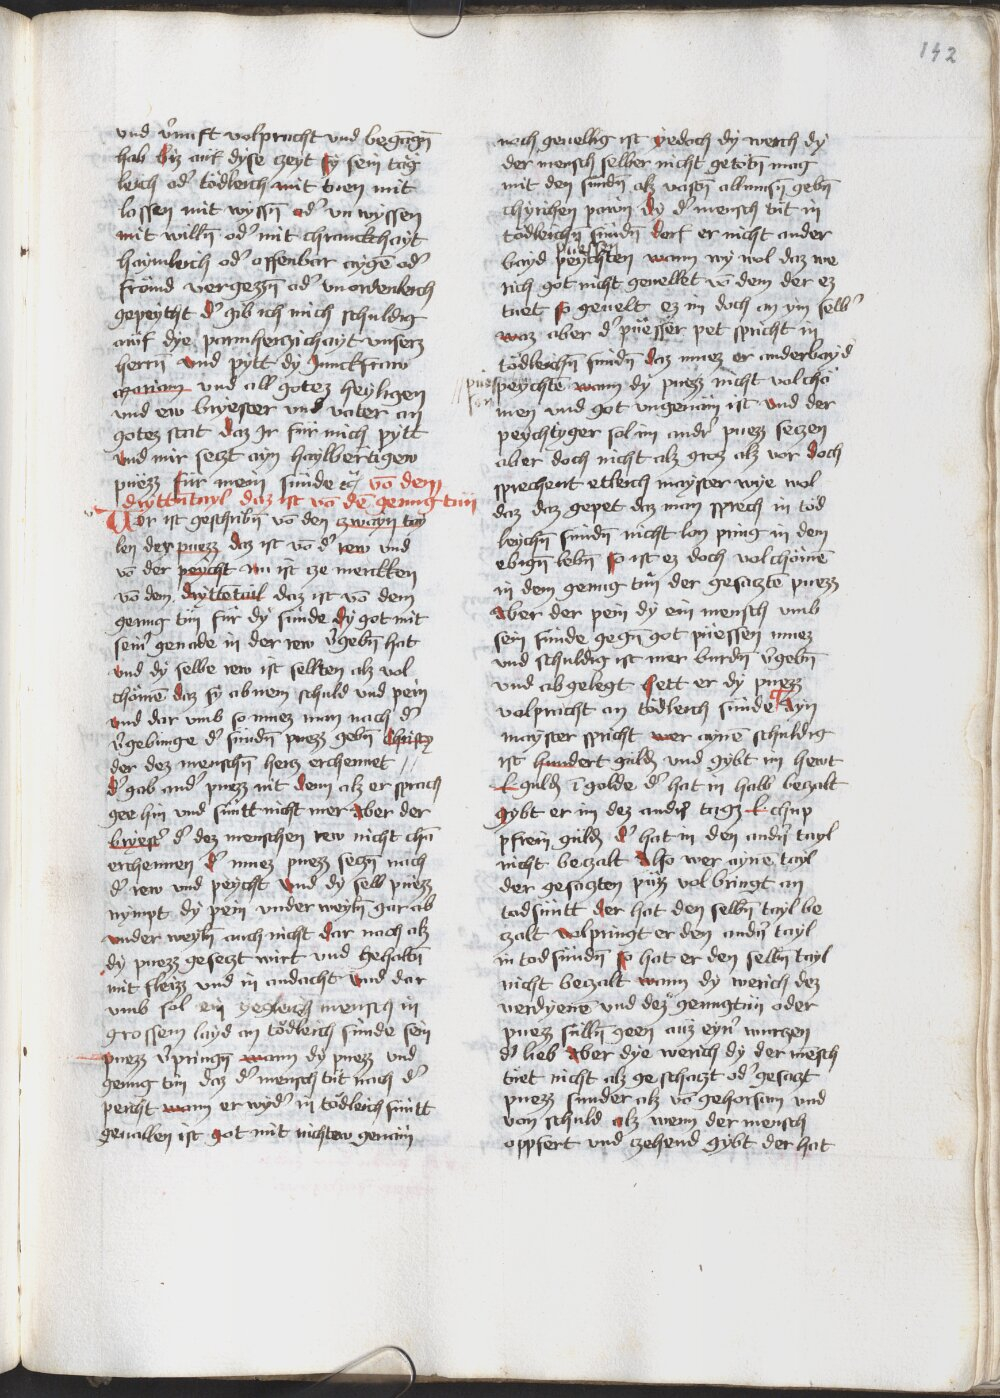 142
vnd v̉nuft volpracht vnd begāgn̄
hab biz auf dyse czeyt sy sein täg
leich od̉ tödleich mit tuen mit
lassen mit wyssn̄ od̉ vn wyssen
mit willn̄ od̉ mit chranckhayt
haymleich od̉ offenbar aygē od̉
främd vergezzn̄ od̉ vnordenleich
gepeycht d̉ gib ich mich schuldig
auf dye parmherczichayt vnserz
herrn̄ vnd pytt dy Junckfraw
mariam vnd all gotez heyligen
vnd ew bryester vnd vater an
gotez stat daz Jr für mich pytt
vnd mir seczt ayn haylbertigew
puezz für mein sünde cȝ vō dem
drytt̄n tayl daz ist vō dē genug tün
Vor ist geschribn̄ vō den czwayn tay
len der puezz daz ist vō d̉ rew vnd
vō der peycht nu ist cze merkken
vō dem drytte tail daz ist vō dem
genug tün für dy sünde dy got mit
sein̉ genade in der rew v̉gebn̄ hat
vnd dy selbe rew ist selkten alz vol
chömē daz sy abnem schuld vnd pein
vnd dar vmb so muez man nach d̉
v̉gebunge d̉ sündn̄ puezz gebn̄ Christy
der dez menschn̄ hercz erchennet //
d̉ gab and̉ puezz nit denn alz er sprach
gee hin vnd süntt nicht mer Aber der
bryest̉ d̉ dez menschen rew nicht chā
erchennen d̉ muez puezz seczn̄ nach
d̉ rew vnd peycht vnd dy selb puezz
nympt dy pein vnder weyln̄ gar ab
vnder weyln̄ auch nicht dar nach alz
dy puezz geseczt wirt vnd behaltn̄
mit fleizz vnd in andacht vnd dar
vmb sol ein yegleich mensch in
grossem layd an tödleich sünde sein
puezz v̉pringn̄ wann dy puezz vnd
genug tün daz d̉ mensch tüt nach d̉
peicht wann er wyd̉ in tödleich süntt
geuallen ist got mit nichtew genäm
noch geuellig ist yedoch dy werch dy
der mensch selber nicht getön mag
mit den sündn̄ alz vastn̄ allmusn̄ gebn̄
chyrichen parin dy d̉ mensch tüt in
tödleichn̄ sündn̄ darf er nicht ander
puessen
bayd peychten wann wy wol daz we
rich got nicht geuellet vō dem der ez
tuet so geuelt ez im doch an ym selb̉
waz aber d̉ püesser pet spricht in
tödleichn̄ sündn̄ daz muez er anderbayd
// püe sen
peychte wann dy puezz nicht volchö
men vnd got vngenäm ist vnd der
peychtyger sol im and̉ puezz seczen
aber doch nicht alz groz alz vor doch
sprechent etleich mayster wye wol
daz daz gepet daz man sprech in töd
leychn̄ sündn̄ nicht lon pring in dem
ebign̄ lebn̄ so ist ez doch volchömē
in dem genug tün der gesaczte puezz
Aber der pein dy ein mensch vmb
sein sünde gegn̄ got püessen muez
vnd schuldig ist mer burdn̄ v̉gebn̄
vnd abgelegt hett er dy puezz
volpracht an tödleich sünde Ayn
mayster spricht wer aynē schuldig
ist hundert guldn̄ vnd gybt im hewt
L guldn̄ ī golde d̉ hat in halb beczalt
gybt er im dez andn̉ tagz L chup
pfrein guldn̄ d̉ hat in den andn̉ tayl
nicht beczalt Also wer aynē tayl
der gesagten püzz volbringt an
tod süntt der hat den selbn̄ tayl be
czalt volpringt er den andn̉ tayl
in tod sündn̄ so hat er den selbn̄ tayl
nicht beczalt wann dy werich dez
verdyenē vnd dez genugtün oder
puezz sülln̄ geen auz eyn̉ wurczen
d̉ lieb Aber dye werich dy der mēsch
tüet nicht alz ge schaczt od̉ gesaczt
puezz sunder alz vō gehorsam vnd
von schuld alz wenn der mensch
oppfert vnd czehend gybt der hat